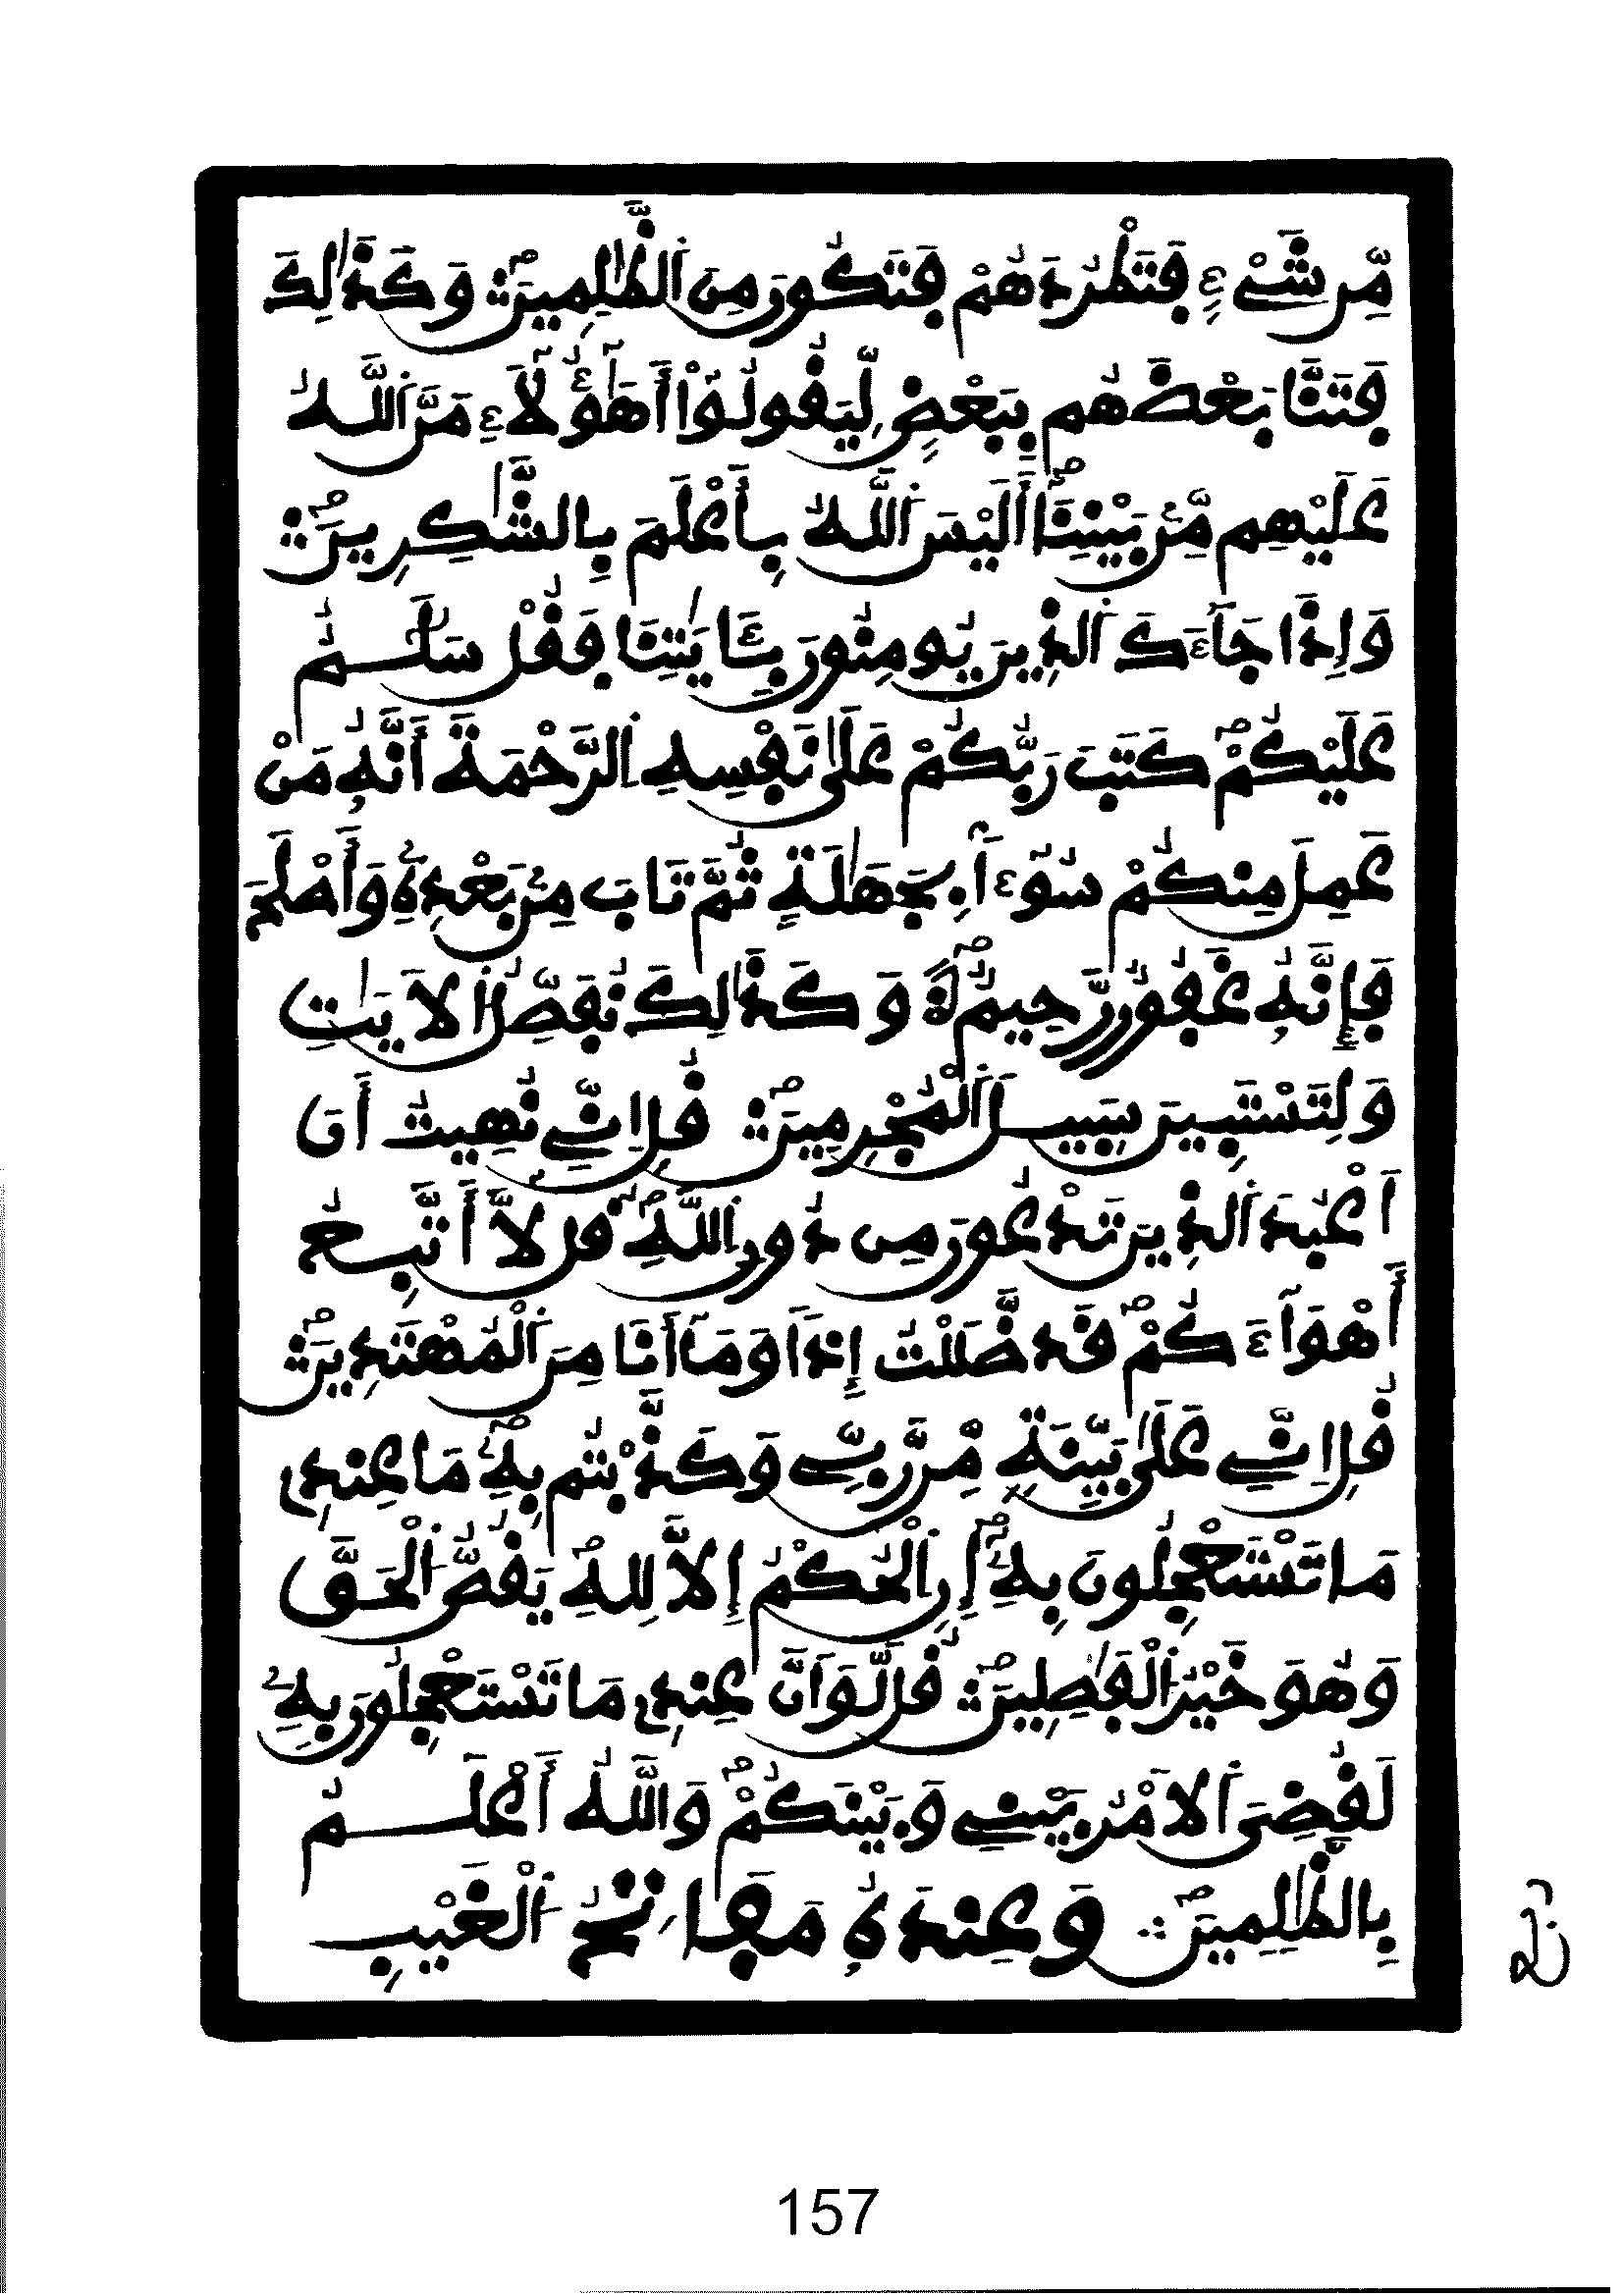 مِّن شَيْءٍ فَتَطْرُدَهُمْ فَتَكُونَ مِنَ الظَّٰلِمِينَ وَكَذَٰلِكَ
فَتَنَّا بَعْضَهُم بِبَعْضٍ لِّيَقُولُوٓاْ أَهَٰٓؤُلَآءِ مَنَّ اللَّهُ
عَلَيْهِم مِّنۢ بَيْنِنَآ أَلَيْسَ اللَّهُ بِأَعْلَمَ بِالشَّٰكِرِينَ
وَإِذَا جَآءَكَ الذِينَ يُومِنُونَ بِـَٔايَٰتِنَا فَقُلْ سَلَٰمٌ
عَلَيْكُمْ كَتَبَ رَبُّكُمْ عَلَىٰ نَفْسِهِ الرَّحْمَةَ أَنَّهُۥ مَنْ
عَمِلَ مِنكُمْ سُوٓءاً بِجَهَٰلَةٍ ثُمَّ تَابَ مِنۢ بَعْدِهِۦ وَأَصْلَحَ
فَإِنَّهُۥ غَفُورٌ رَّحِيمٌ وَكَذَٰلِكَ نُفَصِّلُ الَايَٰتِ
وَلِتَسْتَبِينَ سَبِيلَ الْمُجْرِمِينَ قُلِ اِنِّے نُهِيتُ أَنَ
اَعْبُدَ الذِينَ تَدْعُونَ مِن دُونِ اللَّهِ قُل لَّآ أَتَّبِعُ
أَهْوَآءَكُمْ قَد ضَّلَلْتُ إِذاً وَمَآ أَنَا مِنَ الْمُهْتَدِينَ
قُلِ اِنِّے عَلَىٰ بَيِّنَةٍ مِّن رَّبِّے وَكَذَّبْتُم بِهِۦ مَا عِندِے
مَا تَسْتَعْجِلُونَ بِهِۦٓ إِنِ الْحُكْمُ إِلَّا لِلهِ يَقُصُّ الْحَقَّ
وَهُوَ خَيْرُ الْفَٰصِلِينَ قُل لَّوَ اَنَّ عِندِے مَا تَسْتَعْجِلُونَ بِهِۦ
لَقُضِيَ اَلَامْرُ بَيْنِے وَبَيْنَكُمْ وَاللَّهُ أَعْلَمُ
بِالظَّٰلِمِينَ وَعِندَهُۥ مَفَاتِحُ الْغَيْبِ
157